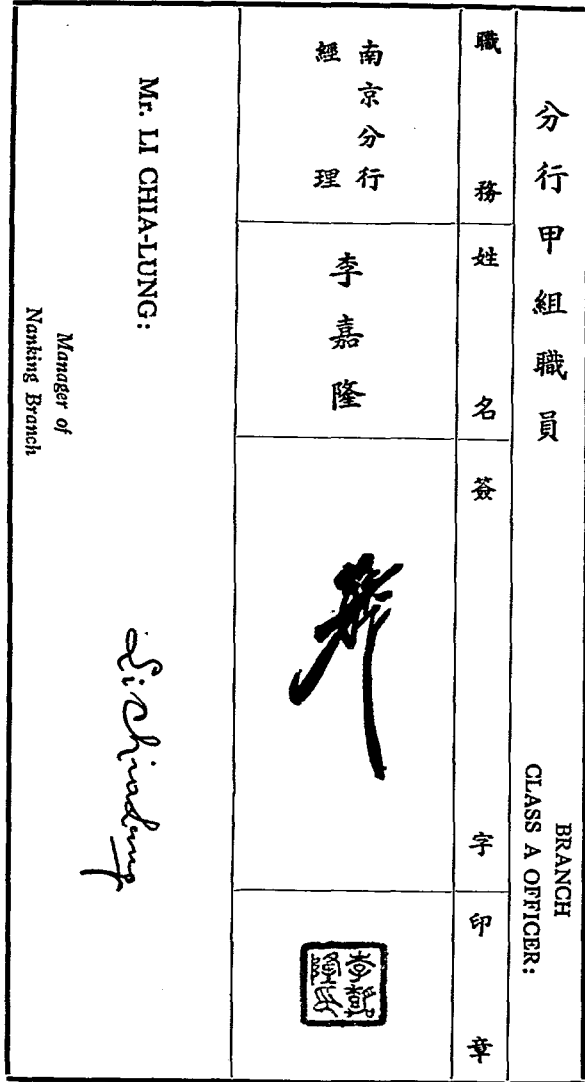 分行甲組職員
BRANCH
CLASS A OFFICER:
職務
姓名
簽字
印章
南京分行
經理
李嘉隆
Mr. LI CHIA-LUNG:
Manager of
Nanking Branch
Li Chia Lung